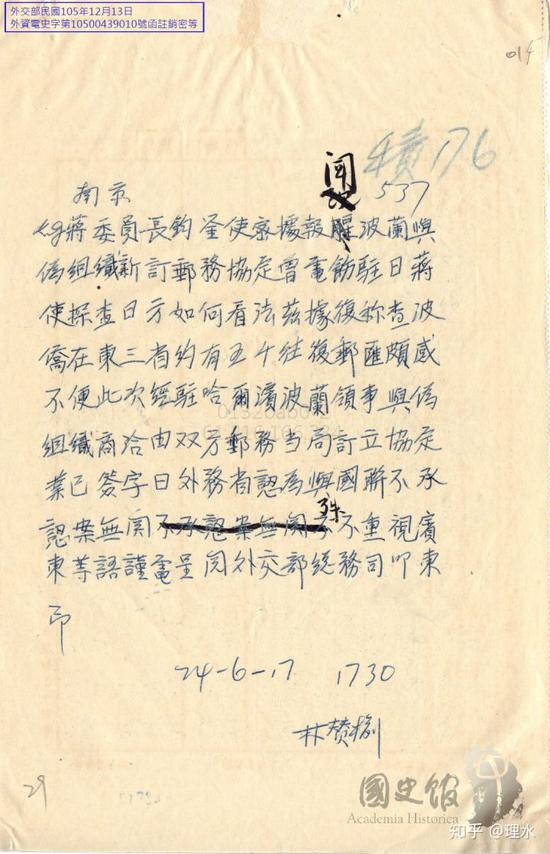 外交部民國105年12月13日
外資電史字第10500439010號函註銷密等
014
176
閻
537
南京
蔣委員長鈞鉴使密據報 波蘭與
偽組織新訂郵務協定曾電飭駐日蔣
使探查日方如何看法茲據復称查波
僑在東三省約有五千往復郵匯頗感
不便此次經駐哈爾濱波蘭領事與偽
組織商洽由双方郵務当局訂立協定
業已簽字日外務省認為與國聯不承
認案無関 殊不重視廣
東等語謹電呈 外交部總務司叩東
印
24-6-17 1730
29
國史館
Academia Historica
知乎 @理水